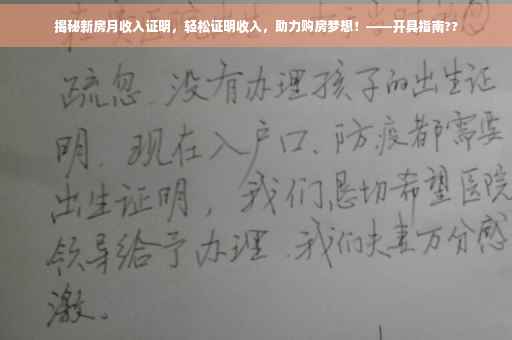 揭秘新房月收入证明，轻松证明收入，助力购房梦想！——开具指南??
疏忽、没有办理孩子的出生证
明、现在入户口、防疫都需要
出生证明，我们恳切希望医院
领导给予办理、我们夫妻万分感
激。